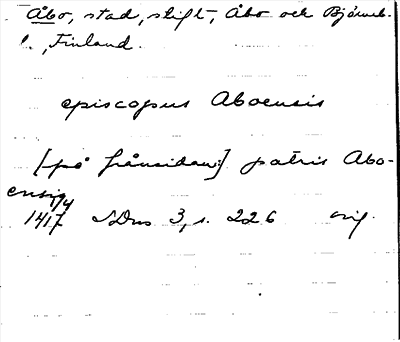 Åbo, stad, stift, Åbo och Björneb.
l., Finland.
episcopus Aboensis
[på frånsidan:] patris Abo-
ensis
1417 SDns 3, s. 226 orig.